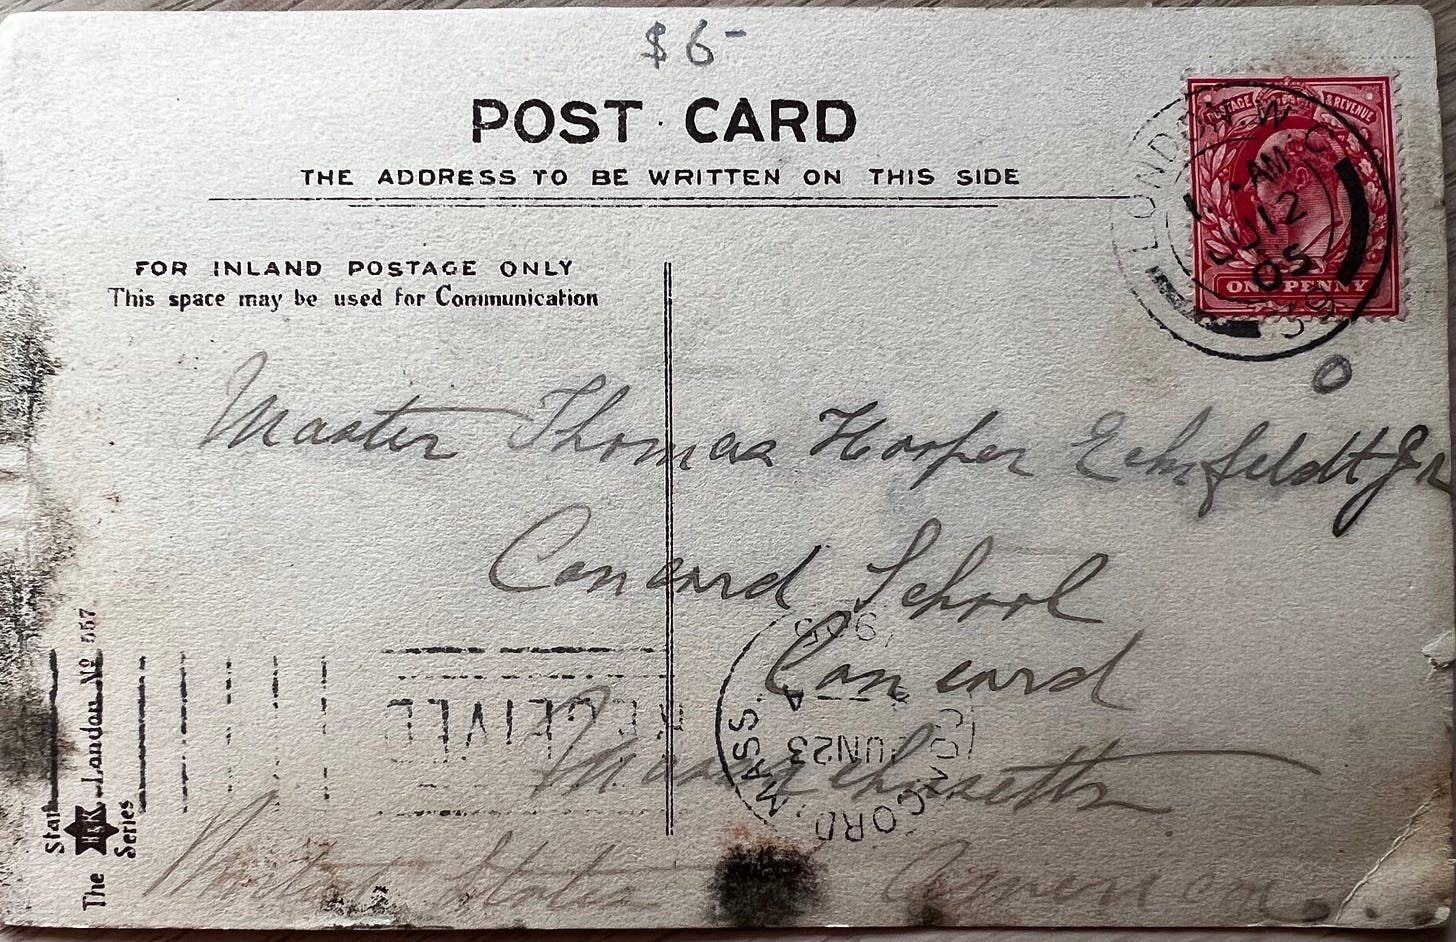 $6-
POST CARD
THE ADDRESS TO BE WRITTEN ON THIS SIDE
POSTAGE & REVENUE
LONDON W.C
AM
JU 12
05
39
ONE PENNY
FOR INLAND POSTAGE ONLY
This space may be used for Communication
Master Thomas Hooper Eckfeldt Jr
Concord School
Concord
Massachusetts
United States America
RECEIVED
CONCORD MASS
JUN 23
A
1905
The Star Series
H&K London No 557